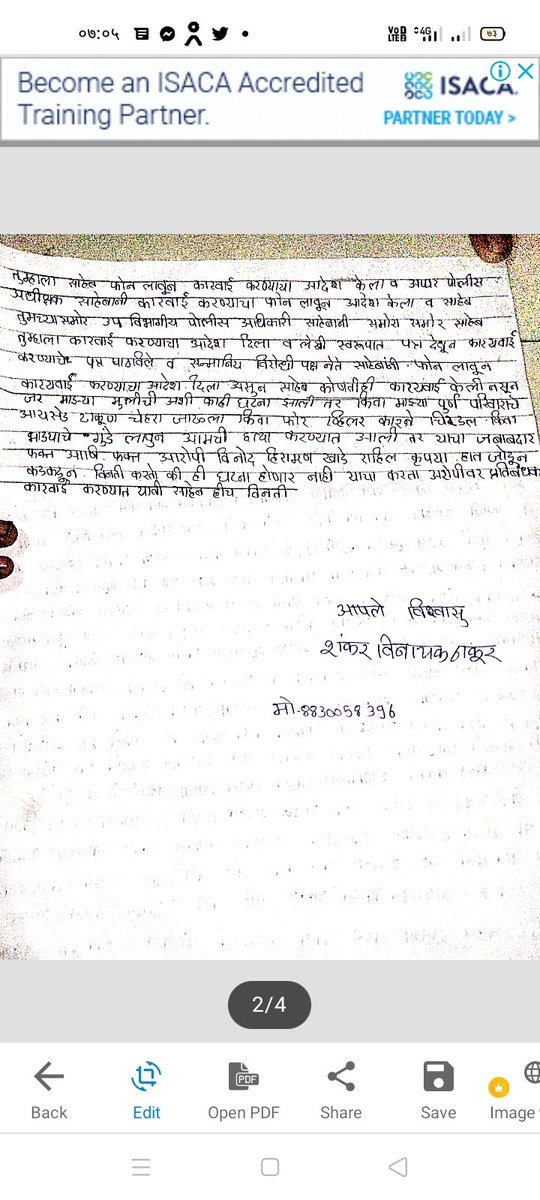 ०७:०५
VoD LTE2 4G ७३
Become an ISACA Accredited
Training Partner.
ISACA
PARTNER TODAY >
तुम्हाला साहेब फोन लावून कारवाई करण्याचा आदेश केला व अपर पोलीस
अधीक्षक साहेबांनी कारवाई करण्याचा फोन लावून आदेश केला व साहेब
तुमच्यासमोर उप विभागीय पोलीस अधिकारी साहेबानी समोरा समोर साहेब
तुम्हाला कारवाई करण्याचा आदेश दिला व लेखी स्वरूपात पत्र देवून कारयवाई
करण्याचे पत्र पाठविले व सन्माननिय विरोधी पक्ष नेते साहेबांनी फोन लावून
कारयवाई करण्याचा आदेश दिला असून साहेब कोणतीही कारयवाई केली नसून
जर माझ्या मुलीची अशी काही घटना झाली तर किंवा माझ्या पुर्ण परिवाराचे
आयसेड टाकूण चेहरा जाळला किंवा फोर व्हिलर कारने चिरडल किंवा
भाडयाचे गुंडे लावुन आमची हत्या करण्यात आली तर याचा जबाबदार
फक्त आणि फक्त आरोपी विनोद हिरामण खाडे राहिल कृपया हात जोडून
कडकडून विनती करतो की ही घटना होणार नाही याचा करता अरोपीवर प्रतिबंधक
कारवाई करण्यात यावी साहेब हीच विनती
आपले विश्वासु
शंकर विनायक ठाकूर
मो.8830058396
2/4
Back
Edit
Open PDF
Share
Save
Image